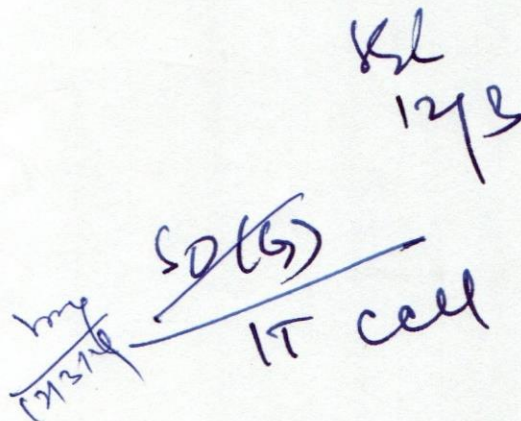 12/3
SO(G)
IT Cell
12/3/14